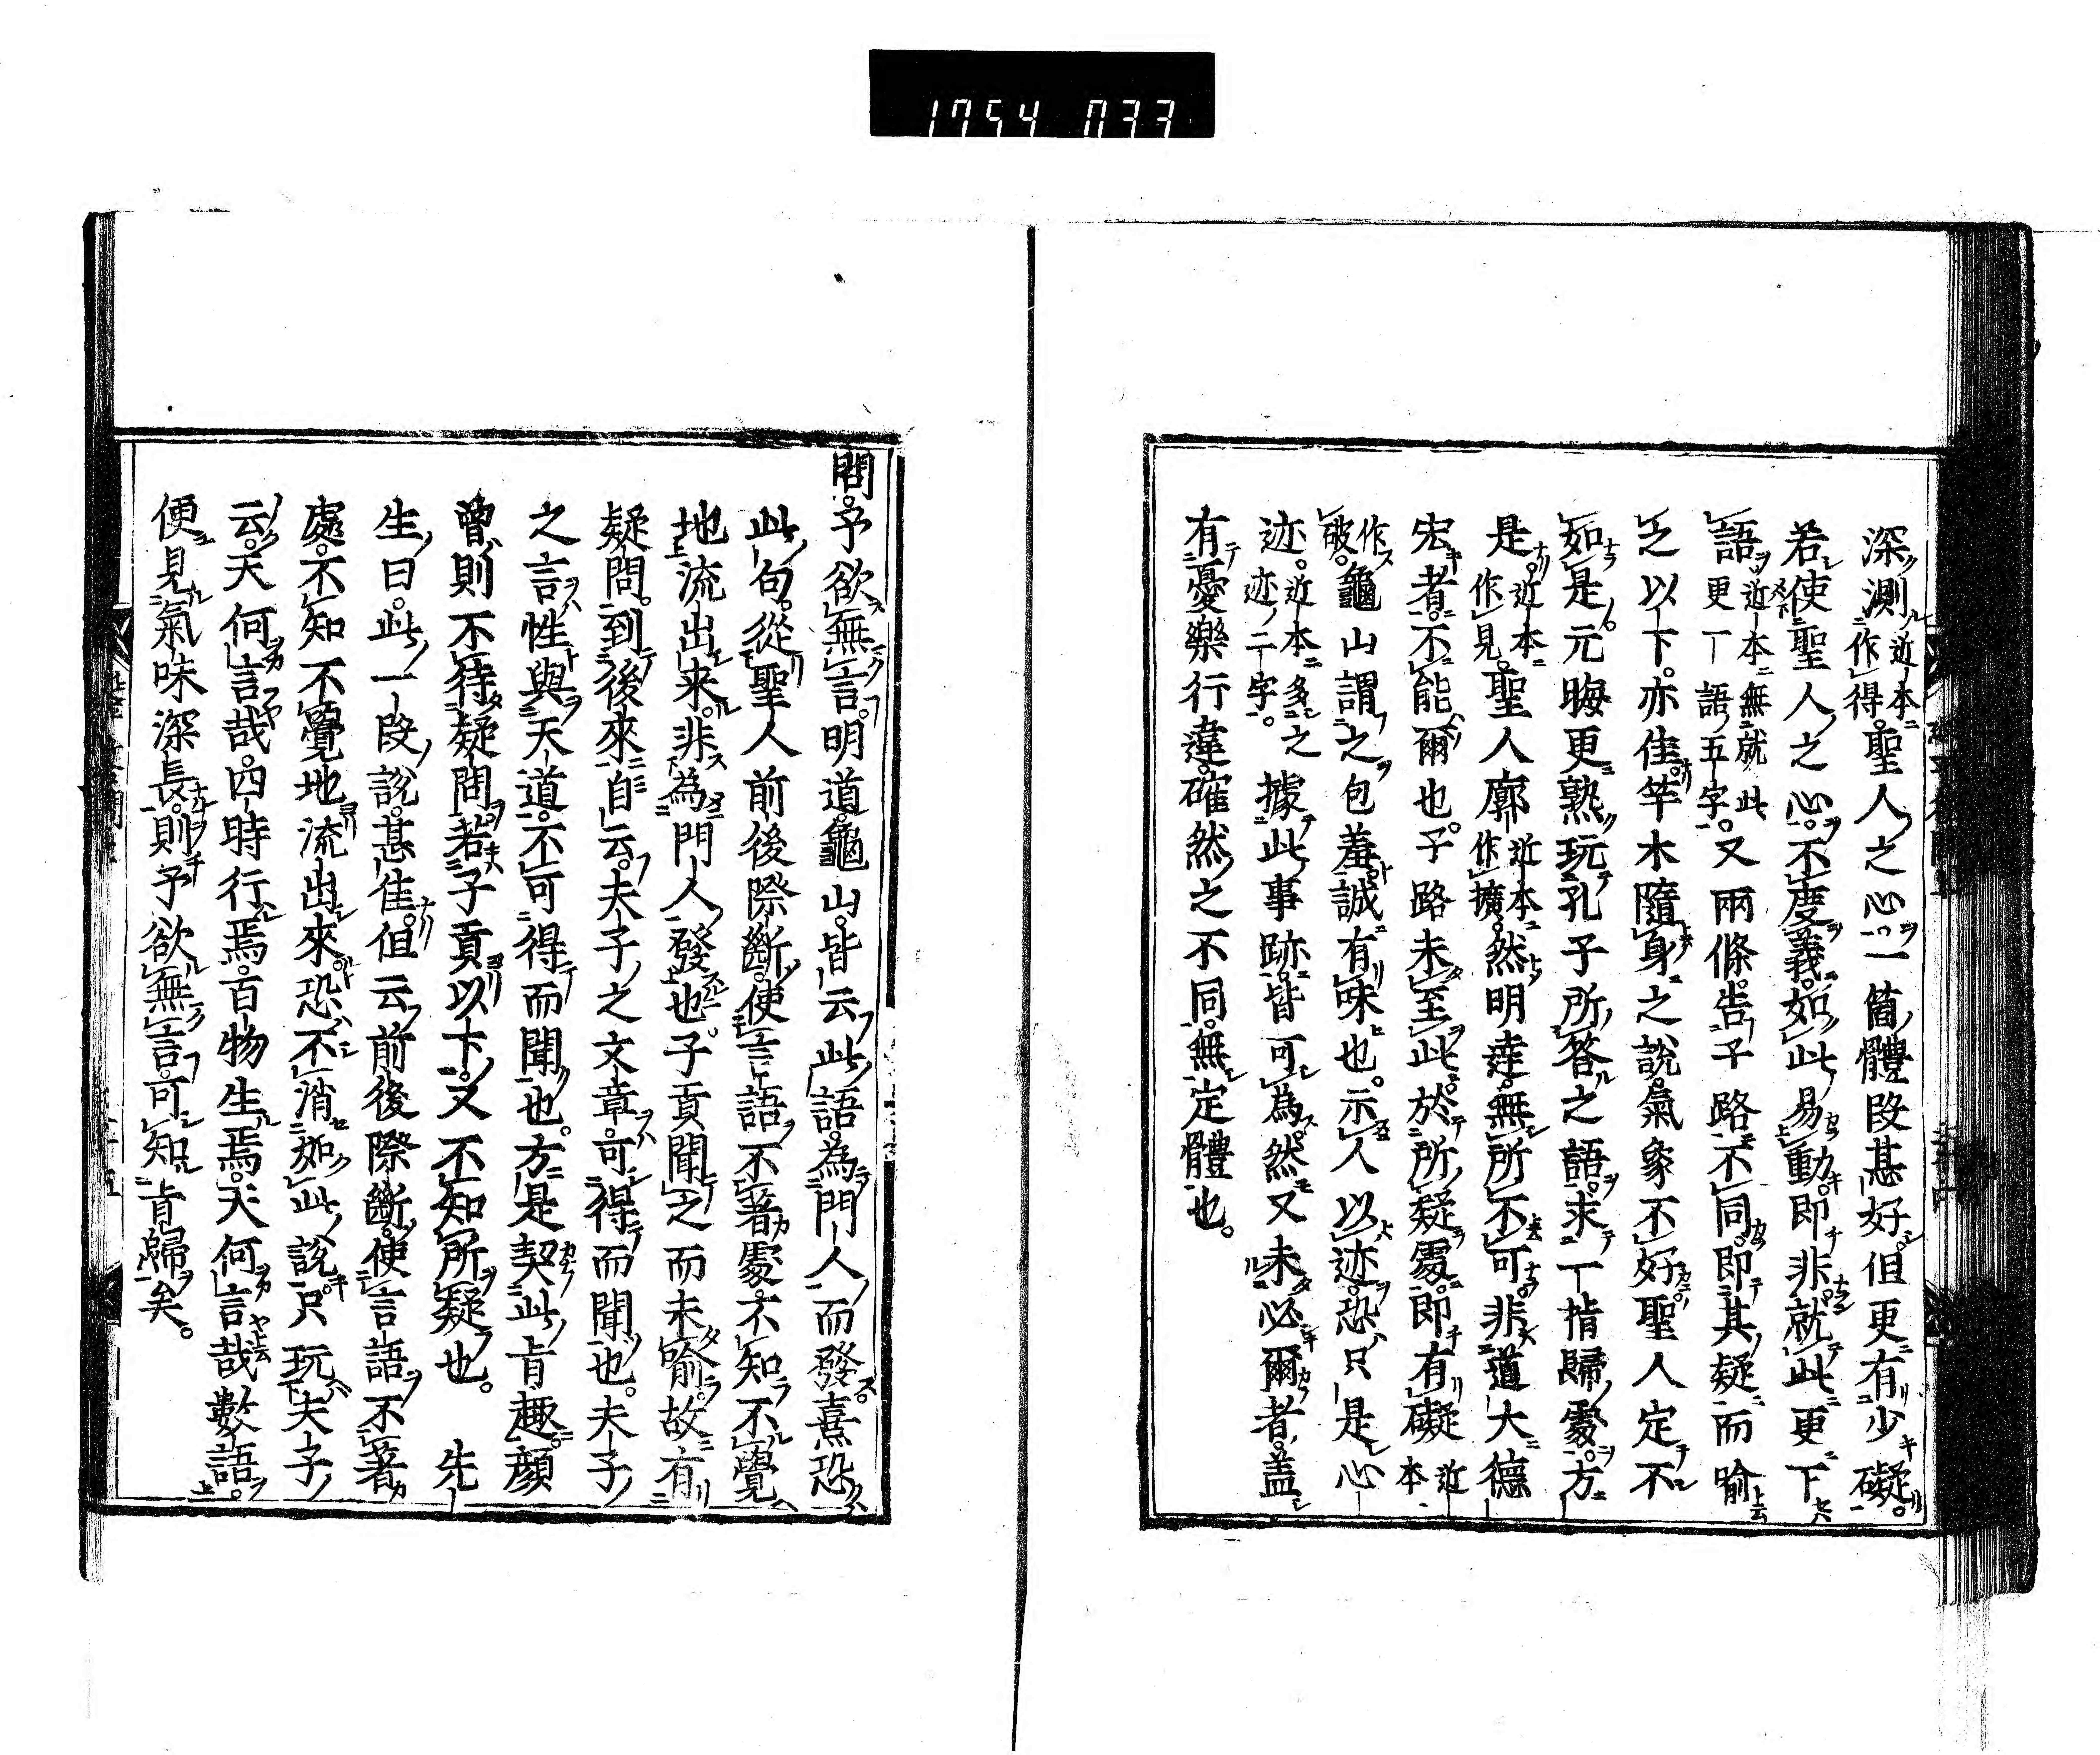 1754 033
深測近本作得聖人之心。一箇體段甚好。但更有少礙。
若使聖人之心。不度義。如此易動。即非。就此更下
語近本無就此更下語五字。又兩條。告子路不同。即其疑而喻
之以下。亦佳。竿木隨身之說。氣象不好。聖人定不
如是。元晦更熟玩孔子所答之語。求一指歸處。方
是。近本作見。聖人廓近本作擴。然明達。無所不可。非道大德
宏者。不能爾也。子路未至此。於所疑處。即有礙近本
作破。龜山謂之包羞。誠有味也。示人以迹。恐只是心
迹。近本多之迹二字。據此事跡。皆可為然。又未必爾者。蓋
有憂樂行違確然之不同。無定體也。
問。予欲無言。明道龜山。皆云此語。為門人而發。熹恐
此句。從聖人前後際斷。使言語不著處。不知不覺
地流出來。非為門人發也。子貢聞之而未喻。故有
疑問。到後來自云。夫子之文章。可得而聞也。夫子
之言性與天道。不可得而聞也。方是契此旨趣。顏
曾則不待疑問。若子貢以下。又不知所疑也。 先
生曰。此一段說。甚佳。但云前後際斷。使言語不著
處。不知不覺地流出來。恐不消如此說。只玩夫子
云。天何言哉。四時行焉。百物生焉。天何言哉數語。
便見氣味深長。則予欲無言。可知旨歸矣。